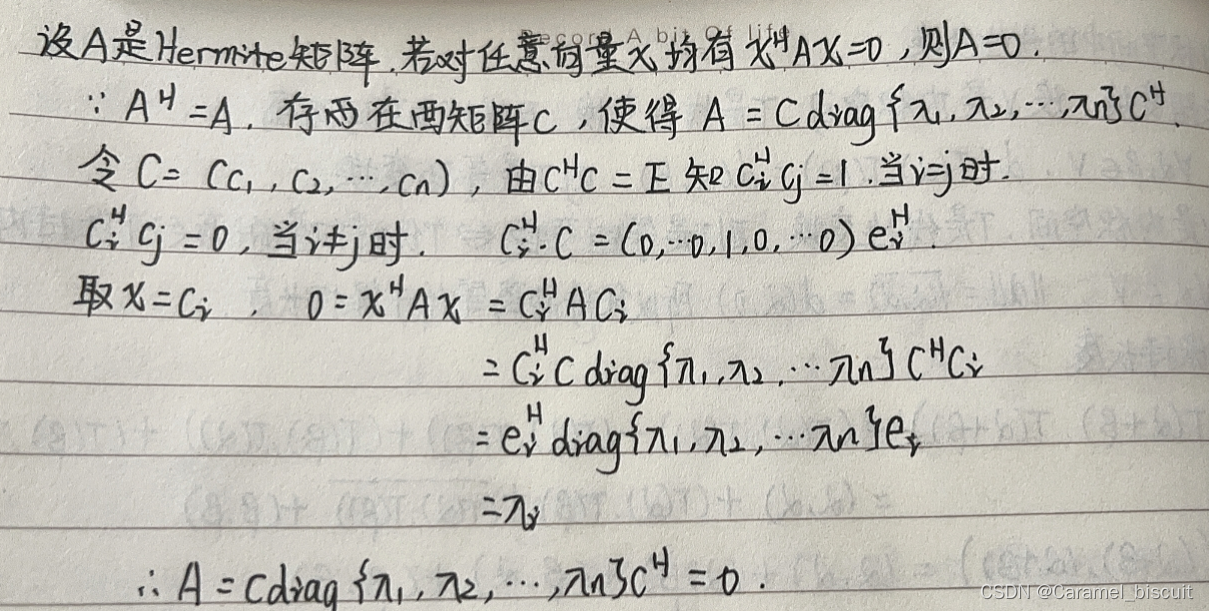 Record A bit Of life
设A是Hermite矩阵.若对任意向量x均有xᴴAx=0,则A=0.
∵ Aᴴ=A. 存酉在酉矩阵C,使得 A = C diag{λ₁,λ₂,⋯,λn}Cᴴ.
令C=(c₁,c₂,⋯,cn),由CᴴC=E 知 cᵢᴴcⱼ=1.当i=j时.
cᵢᴴcⱼ=0,当i≠j时. cᵢᴴ·C=(0,⋯0,1,0,⋯0) eᵢᴴ.
取x=cᵢ. 0=xᴴAx=cᵢᴴAcᵢ
=cᵢᴴC diag{λ₁,λ₂,⋯λn}Cᴴcᵢ
=eᵢᴴ diag{λ₁,λ₂,⋯λn}eᵢ
=λᵢ
∴ A=Cdiag{λ₁,λ₂,⋯,λn}Cᴴ=0.
CSDN @Caramel_biscuit